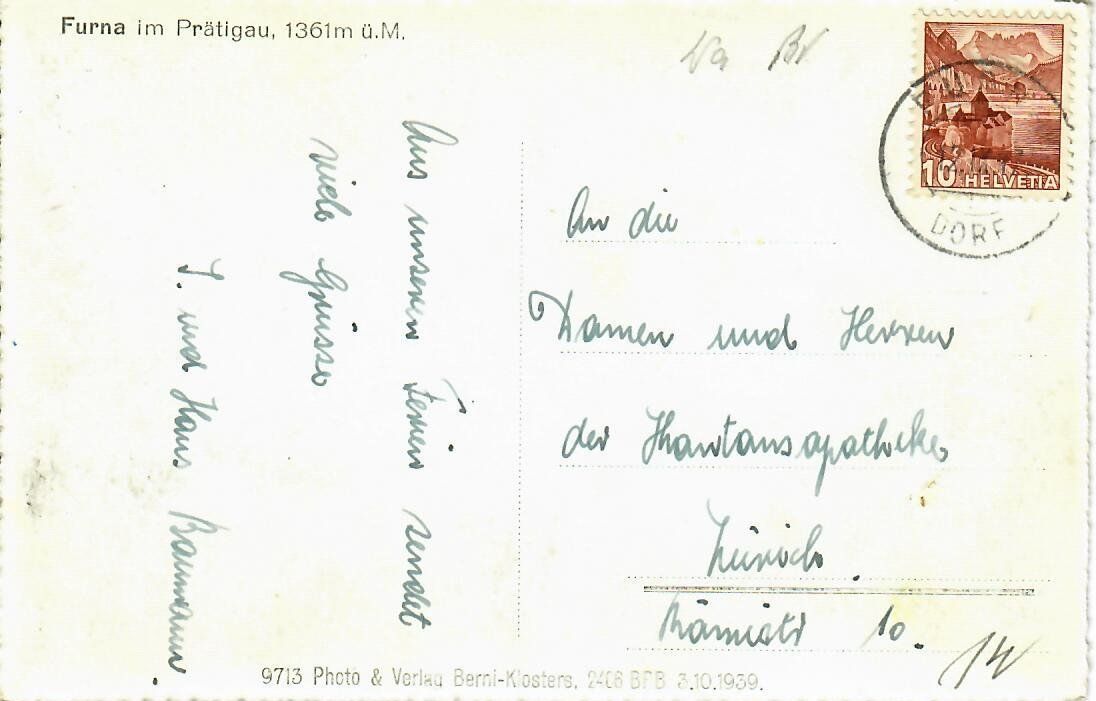 Furna im Prätigau, 1361m ü.M.
Aus unseren Ferien sendet
viele Grüsse
J. und Hans Baumann
10 HELVETIA
DORF
An die
Damen und Herren
der Kantonsapotheke
Zürich.
Rämistr 10.
14
9713 Photo & Verlag Berni-Klosters, 2406 BFB 3.10.1939.